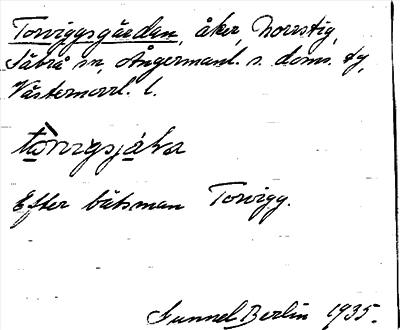 Torviggsgården, åker, Norrstig,
Säbrå sn, Ångermanl. s. doms. dy,
Västernorrl. l.
Efter båtsman Torvigg.
Gunnel Berlin 1935.